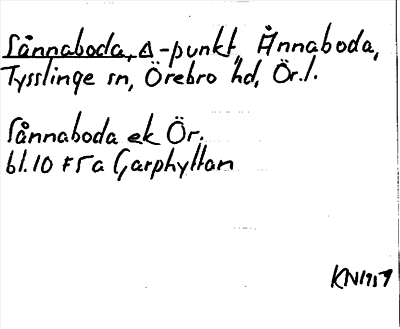 Sånnaboda, Δ-punkt, Ånnaboda,
Tysslinge sn, Örebro hd, Ör.l.
Sånnaboda ek Ör.
bl.10 F5a Garphyttan